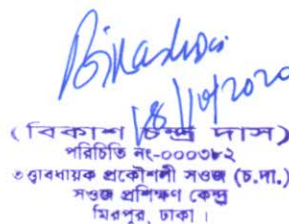 18/10/2020
(বিকাশ চন্দ্র দাস)
পরিচিতি নং-০০০৩৮২
তত্ত্বাবধায়ক প্রকৌশলী সওজ (চ.দা.)
সওজ প্রশিক্ষণ কেন্দ্র
মিরপুর, ঢাকা।